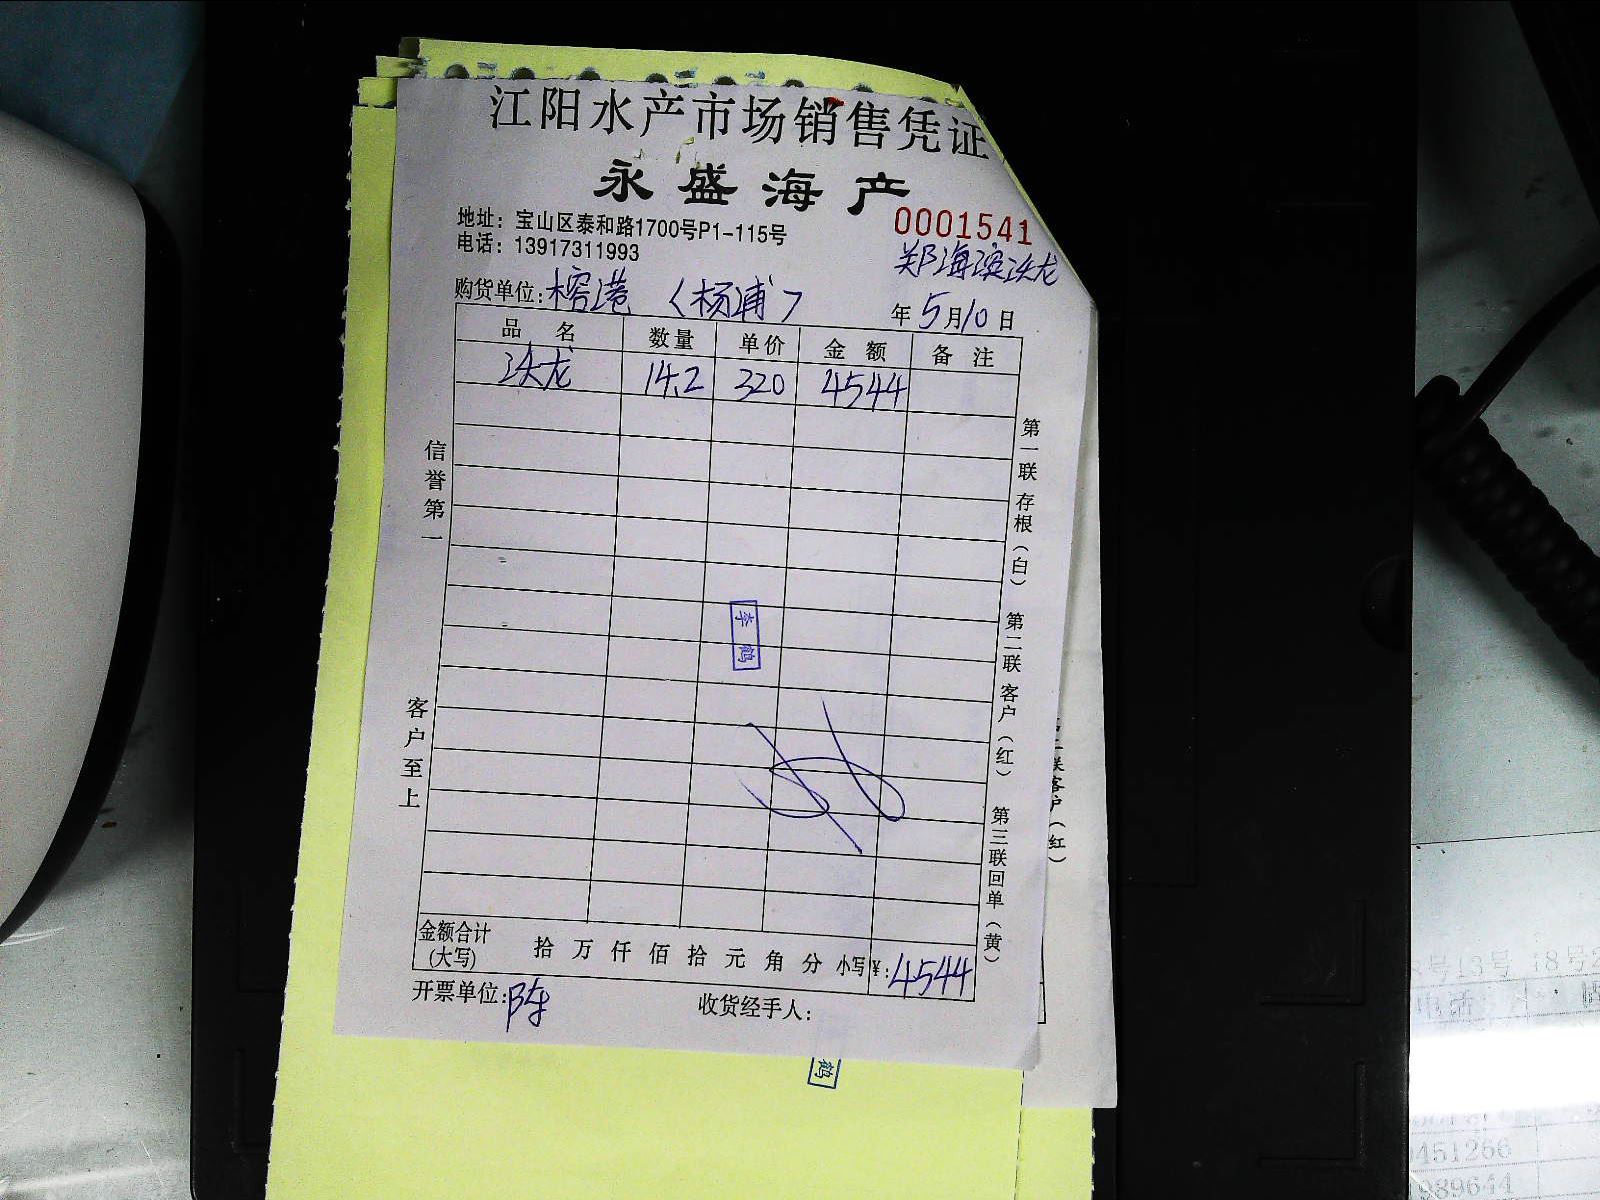 江阳水产市场销售凭证
永盛海产
0001541
地址：宝山区泰和路1700号P1-115号
电话：13917311993
郑海滨沃龙
购货单位：榕港（杨浦）
年5月10日
品名 数量 单价 金额 备注
沃龙 14.2 320 4544
信誉第一
客户至上
第一联存根（白） 第二联客户（红） 第三联回单（黄）
联客户（红）
李鹤
金额合计（大写） 拾万仟佰拾元角分 小写¥：4544
开票单位：陈 收货经手人：
鹤
451266
989644